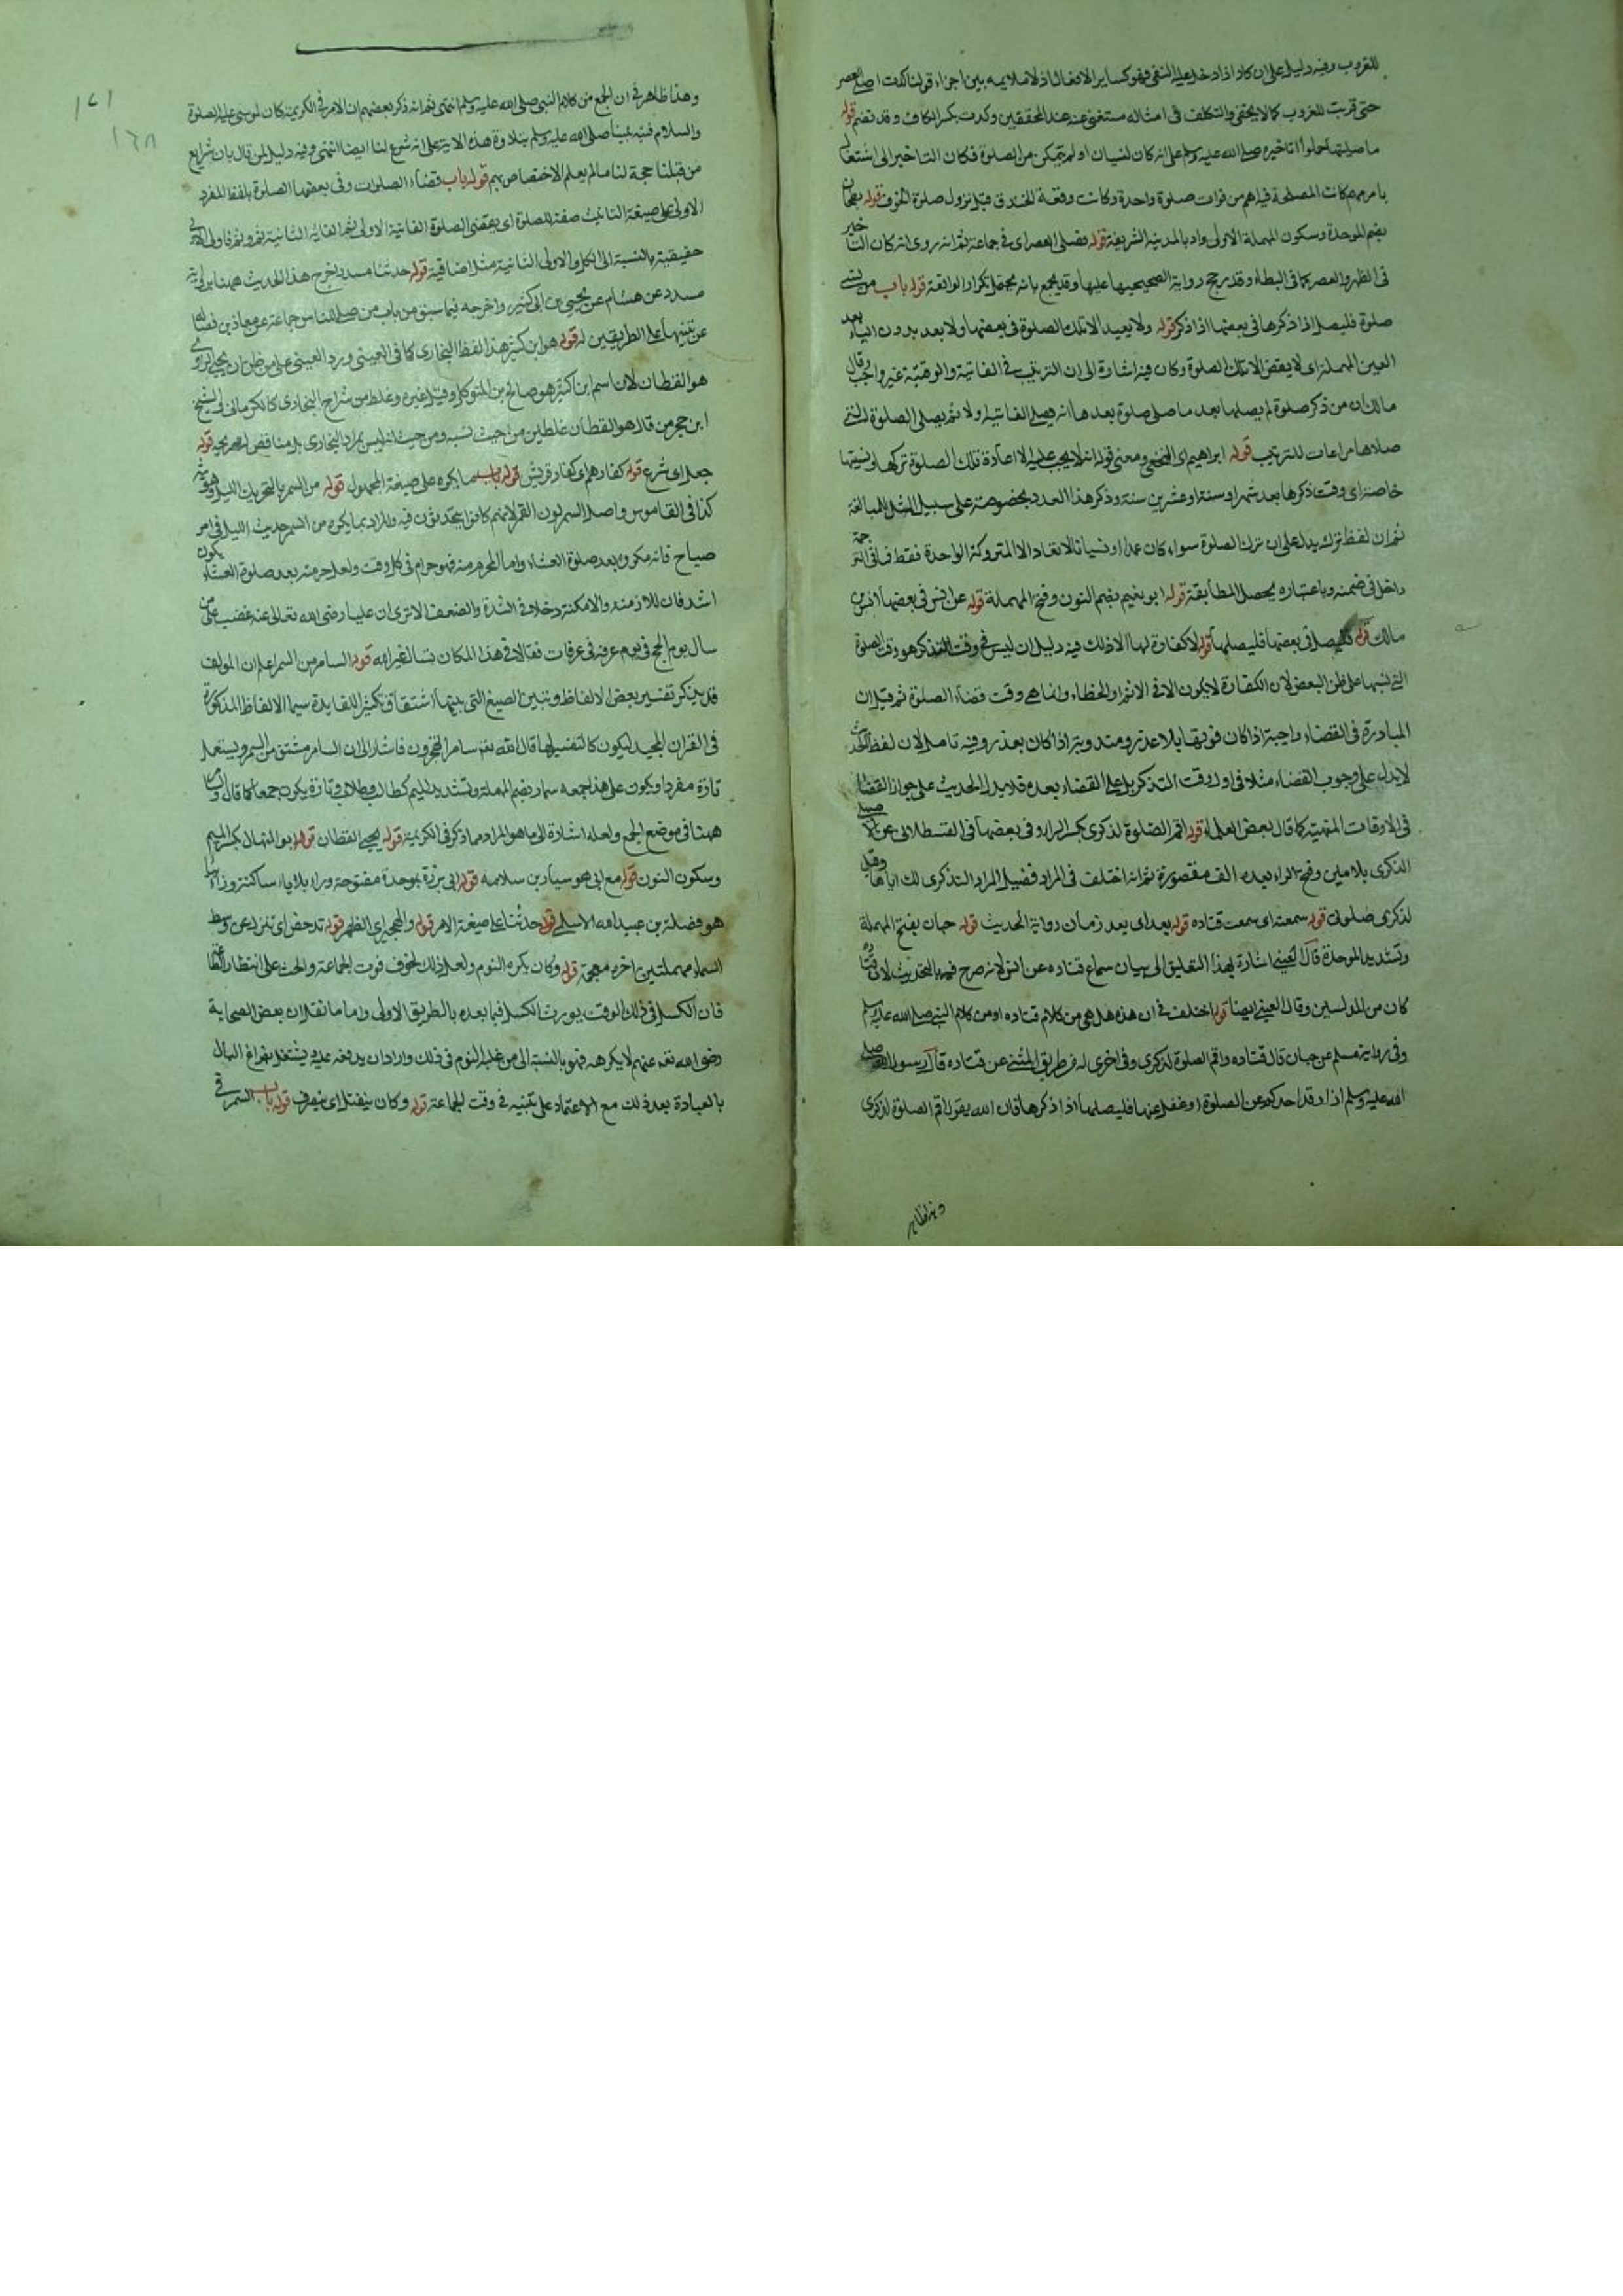 للغروب وفيه دليل على ان كاد اذا دخل عليه النفى فهو كساير الافعال اذ لا ملايمه بين اجزاء قولنا كدت اصلى العصر
حتى قربت للغروب كما لا يخفى والتكلف فى امثاله مستغنى عنه عند المحققين وكدت بكسر الكاف وقد تضم قوله
ما صليتها حملوا تاخيره صلى الله عليه وسلم على انه كان لنسيان او لم يتمكن من الصلوة فكان التاخير الى اشتغال
بامر مهم كانت المصلحة فيه اهم من فوات صلوة واحدة وكانت وقعة الخندق قبل نزول صلوة الخوف قوله بطحان
بضم الموحدة وسكون المهملة الاولى واد بالمدينة الشريفة قوله فصلى العصر اى فى جماعة ثم انه روى انه كان التاخير
فى الظهر والعصر كما فى الموطاء وقد رجح رواية الصحيحين عليها وقد يجمع بانه محمول تكرار الواقعة قوله باب من نسى
صلوة فليصل اذا ذكرها فى بعضها اذا ذكر قوله ولا يعيد الا تلك الصلوة فى بعضها ولا يعد بدون الياء بعد
العين المهملة اى لا يقضى الا تلك الصلوة وكان فيه اشارة الى ان الترتيب فى الفائتة والوقتية غير واجب وقال
مالك ان من ذكر صلوة لم يصلها بعد ما صلى صلوة بعدها انه يصلى الفائتة ولا ثم يصلى الصلوة التى
صلاها مراعات للترتيب قوله ابراهيم اى النخعى ومعنى قوله انه لا يجب عليه الا اعادة تلك الصلوة تركها ونسيتها
خاصة اى وقت ذكرها بعد شهر او سنة او عشرين سنة وذكر هذا العدد بخصوصه على سبيل المثل للمبالغة
ثم ان لفظ ترك يدل على ان ترك الصلوة سواء كان عمدا او نسيانا لا تعاد الا المتروكة الواحدة فقط فما فى الترجمة
داخل فى ضمنه وباعتباره يحصل المطابقة قوله ابو نعيم بضم النون وفتح المهملة قوله عن انس فى بعضها انس بن
مالك قوله فليصل فى بعضها فليصلها قوله لا كفارة لها الا ذلك فيه دليل ان ليس فى وقت التذكر هو وقت الصلوة
التى نسيها على ظن البعض لان الكفارة لا يكون الا فى الاثم والخطاء وانما هى وقت قضاء الصلوة ثم قيل ان
المبادرة فى القضاء واجبة اذا كان فوتها بلا عذر ومندوبة اذا كان بعذر وفيه تامل لان لفظ الحديث
لا يدل على وجوب القضاء مثلا فى اول وقت التذكر بل على القضاء بعده فلا يدل الحديث على جواز القضاء
فى الاوقات المنهية كما قال بعض العلماء قوله اقم الصلوة لذكرى بكسر الراء وفى بعضها فى القسطلانى عن الاصيلى
الذكرى بلامين وفتح الراء بعده الف مقصورة ثم انه اختلف فى المراد فقيل المراد لتذكرى لك اياها وقيل
لذكرى صلوتى قوله سمعته اى سمعت قتاده قوله بعد اى بعد زمان رواية الحديث قوله حبان بفتح المهملة
وتشديد الموحدة قال العينى اشارة بهذا التعليق الى بيان سماع قتاده عن انس لانه صرح فيها بالتحديث لان قتاده
كان من المدلسين وقال العينى ايضا قوله اختلف فى ان هذه هل هى من كلام قتاده او من كلام النبى صلى الله عليه وسلم
وفى رواية مسلم عن حبان قال قتاده واقم الصلوة لذكرى وفى اخرى له من طريق المثنى عن قتاده قال رسول الله صلى
الله عليه وسلم اذا رقد احدكم عن الصلوة او غفل عنها فليصلها اذا ذكرها فان الله يقول اقم الصلوة لذكرى
وهذا ظاهر
١٧١
١٦٨
وهذا ظاهر فى ان الجمع من كلام النبى صلى الله عليه وسلم انتهى ثم انه ذكر بعضهم ان الامر فى الكريمة كان لموسى عليه الصلوة
والسلام فنبه نبينا صلى الله عليه وسلم بتلاوة هذه الاية على انه شرع لنا ايضا انتهى وفيه دليل لمن قال بان شرايع
من قبلنا حجة لنا ما لم يعلم الاختصاص بهم قوله باب قضاء الصلوات وفى بعضها الصلوة بلفظ المفرد
الاولى على صيغة التانيث صفة للصلوة اى يقضى الصلوة الفائتة الاولى ثم الفائتة الثانية ثم وثم فاولى الاولى
حقيقية بالنسبة الى الكل والاولى الثانية مثلا اضافية قوله حدثنا مسدد اخرج هذا الحديث ههنا برواية
مسدد عن هشام عن يحيى بن ابى كثير واخرجه فيما سبق من باب من صلى بالناس جماعة عن معاذ بن فضالة
عن تنبيها على الطريقين له قوله هو ابن كثير هذا لفظ البخارى كما فى العينى ورد العينى على من ظن ان يحيى الراوى
هو القطان لان اسم ابن كثير هو صالح بن المتوكل وقيل غيره وغلط من شراح البخارى كالكرمانى فى الشيخ
ابن حجر من قال هو القطان غلطين من حيث نسبه ومن حيث انه ليس بمراد البخارى بل مناقض لصريحه قوله
جعل اى شرع قوله كفارهم اى كفار قريش قوله باب ما يكره على صيغة المجهول قوله من السمر بالتحريك الليل وحديثه
كذا فى القاموس واصل السمر لون القمر لانهم كانوا يتحدثون فيه والمراد بما يكره من السمر حديث الليل فى امر
صباح فانه مكروه بعد صلوة العشاء واما المحرم منه فهو حرام فى كل وقت ولعل حرمته بعد صلوة العشاء يكون
اشد فان للازمنة والامكنة دخلا فى الشدة والضعف الا ترى ان عليا رضى الله تعالى عنه غضب على من
سال يوم الحج فى يوم عرفه فى عرفات فقال افى هذا المكان تسال غير الله قوله السامر من السمر اعلم ان المولف
قد يذكر تفسير بعض الالفاظ وتبين الصيغ التى بينها اشتقاق تكثيرا للفايدة سيما الالفاظ المذكورة
فى القران المجيد ليكون كالتفسير لها قال الله تعم سامرا تهجرون فاشار الى ان السامر مشتق من السمر ويستعمل
تارة مفردا ويكون على هذا جمعه سمار بضم المهملة وتشديد الميم كطالب وطلاب وتارة يكون جمعا كما قال والسامر
ههنا فى موضع الجمع ولعله اشارة الى ما هو المراد مما ذكر فى الكريمة قوله يحيى القطان قوله ابو المنهال بكسر الميم
وسكون النون قوله مع ابى هو سيار بن سلامه قوله ابى برزة بموحدة مفتوحة وراء بلا ياء ساكنة وزاء
هو فضلة بن عبيد الله الاسلمى قوله حدثنا على صيغة الامر قوله والهجير اى الظهر قوله تدحض اى تنزل عن وسط
السماء مهملتين اخره معجمة قوله وكان يكره النوم ولعل ذلك لخوف فوت الجماعة والحث على انتظار الطاعة
فان الكسل فى ذلك الوقت يورث الكسل فيما بعده بالطريق الاولى واما ما نقل ان بعض الصحابة
رضى الله تعم عنهم لا يكرهه فهو بالنسبة الى من غلبه النوم فى ذلك واراد ان يدفعه عنه ويشتغل بفراغ البال
بالعبادة بعد ذلك مع الاعتماد على تنبيه فى وقت الجماعة قوله وكان ينفتل اى ينصرف قوله باب السمر فى